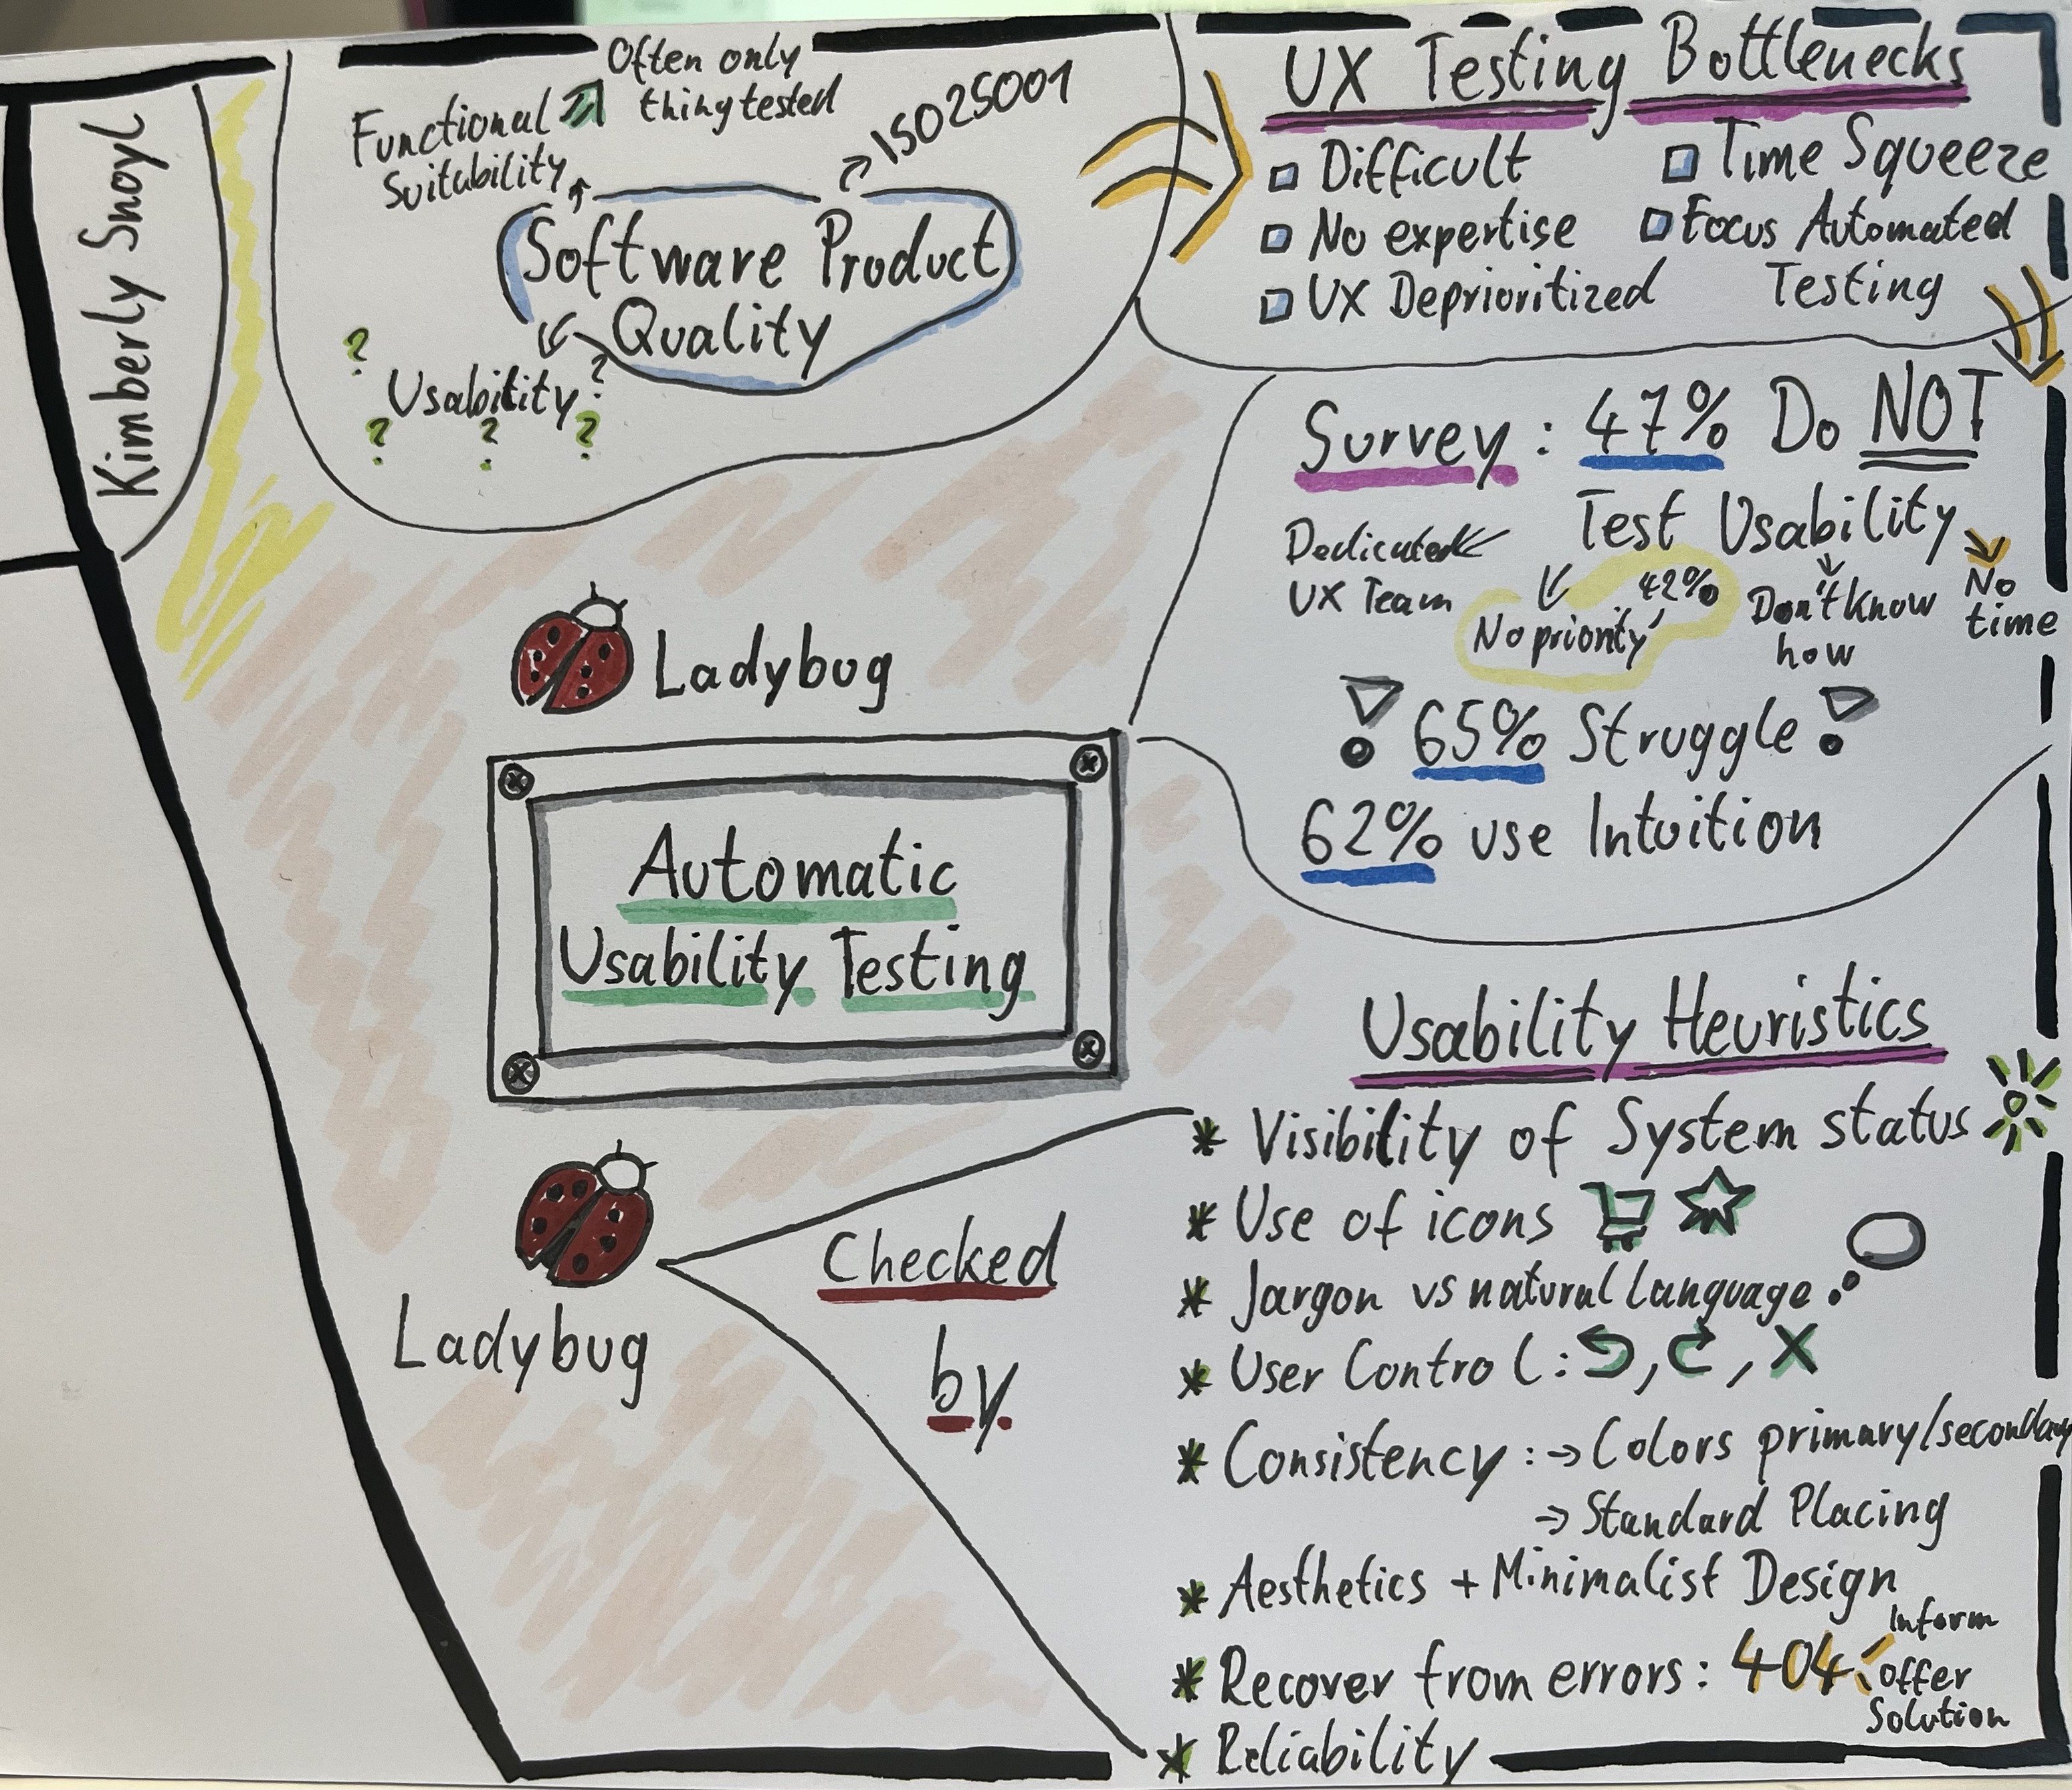 Kimberly Snoyl
Often only
thing tested
Functional
Suitability
ISO25001
Software Product
Quality
?
?
Usability
? ? ?
UX Testing Bottlenecks
Difficult
No expertise
UX Deprioritized
Time Squeeze
Focus Automated
Testing
Survey: 47% Do NOT
Test Usability
Dedicated
UX Team
42%
No priority
Don't know
how
No
time
65% Struggle
62% use Intuition
Ladybug
Automatic
Usability Testing
Ladybug
Checked
by
Usability Heuristics
* Visibility of System status
* Use of icons
* Jargon vs natural language
* User Control: , , X
* Consistency: → Colors primary/secondary
→ Standard Placing
* Aesthetics + Minimalist Design
* Recover from errors: 404
Inform
offer
Solution
* Reliability